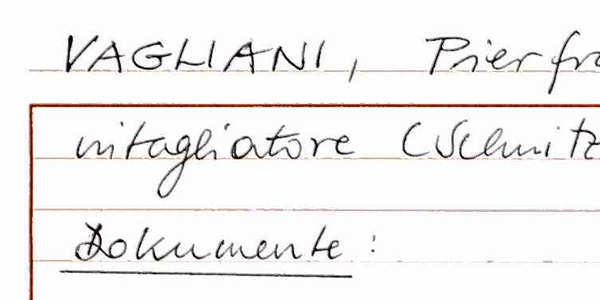 VAGLIANI, Pierfra
intagliatore (Schnitz
Dokumente: